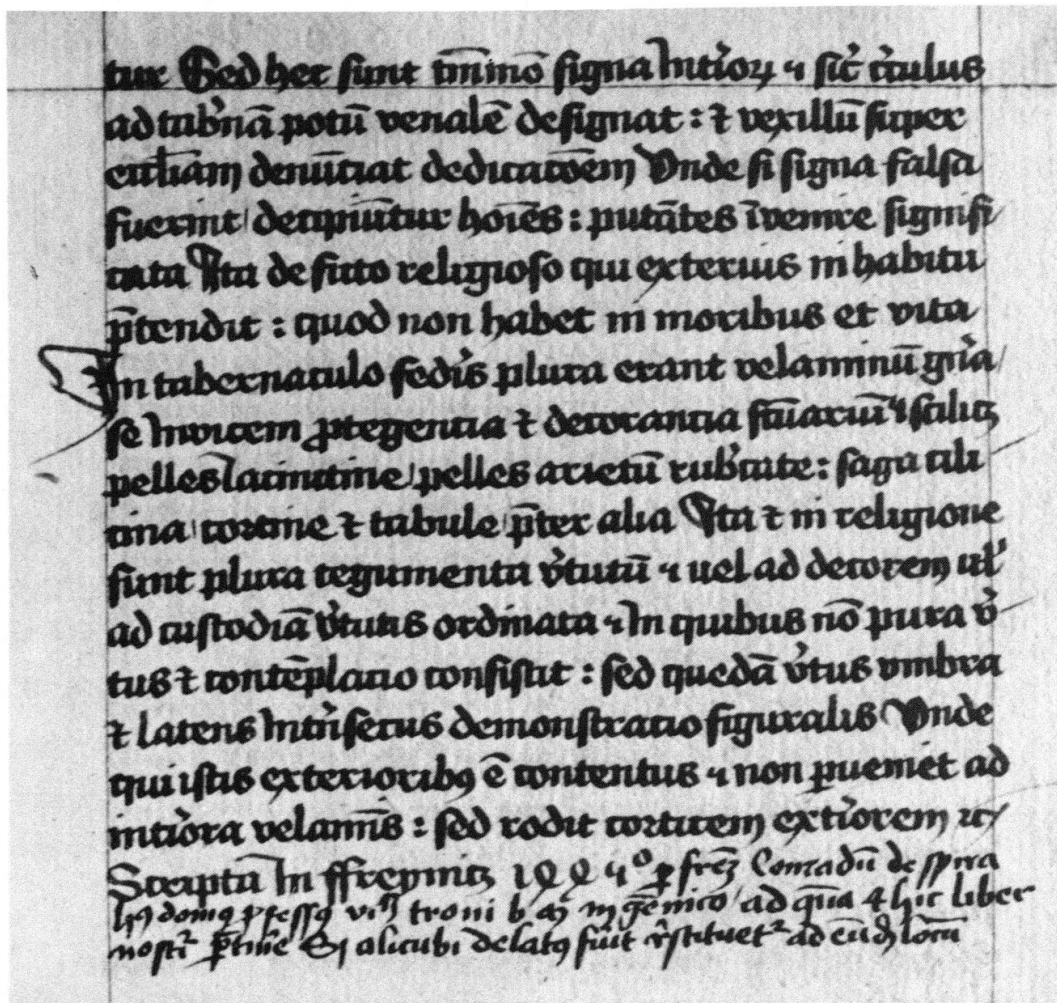 tur Sed hec sunt tm̄mō signa Int'ioꝝ ⁊ sic̄ c'culus
ad tab'nā potū venalē designat : ⁊ vexillū super
eccl̄iam denūtiat dedicatōem Vnde si signa falsa
fuerint decipiūtur hoīes : putātes īvenire signifi
cata Ita de ficto religioso qui exterius in habitu
p̄tendit : quod non habet in moribus et vita
In tabernaculo fed'is plura erant velaminū gn̄a
se Invicem ꝓtegentia ⁊ decorantia sc̄uariū scilicꝫ
pelles Iacinctine pelles arietū rub'cate : saga cili
cina cortine ⁊ tabule p̄ter alia Ita ⁊ in religione
sunt plura tegumenta v'tutū uel ad decorem ul'
ad custodiā v'tutis ordinata In quibus nō pura v'
tus ⁊ contēplatio consistit : sed quedā v'tus vmbra
⁊ latens Int'insecus demonstratio figuralis Vnde
qui istis exterioribꝰ ē contentus non ꝑueniet ad
int'iora velamīs : sed rodit corticem ext'iorem ⁊c
Scriptū In ffrenitꝫ ꝑ fr̄em Conradū de spira
domꝰ ꝓfessꝰ troni b m̄ in ad quā hic liber
nost' ꝑtinē Si alicubi delatꝰ fuit r̄stituet' ad eūdē locū